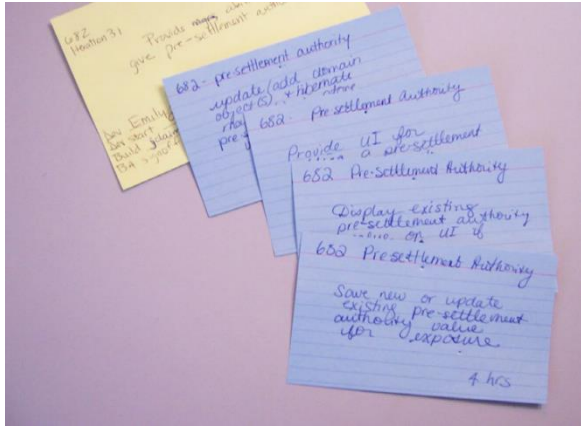 682
Iteration 31
Provide
give pre-settlement
Dev Emily
Dev start
Build
BA signoff
682 - pre-settlement authority
update/add domain
object(s) + hibernate
pre-
682 - Pre-settlement Authority
Provide UI for
a pre-settlement
682 Pre-Settlement Authority
Display existing
pre-settlement authority
on UI if
682 Presettlement Authority
Save new or update
existing pre-settlement
authority value
for exposure
4 hrs